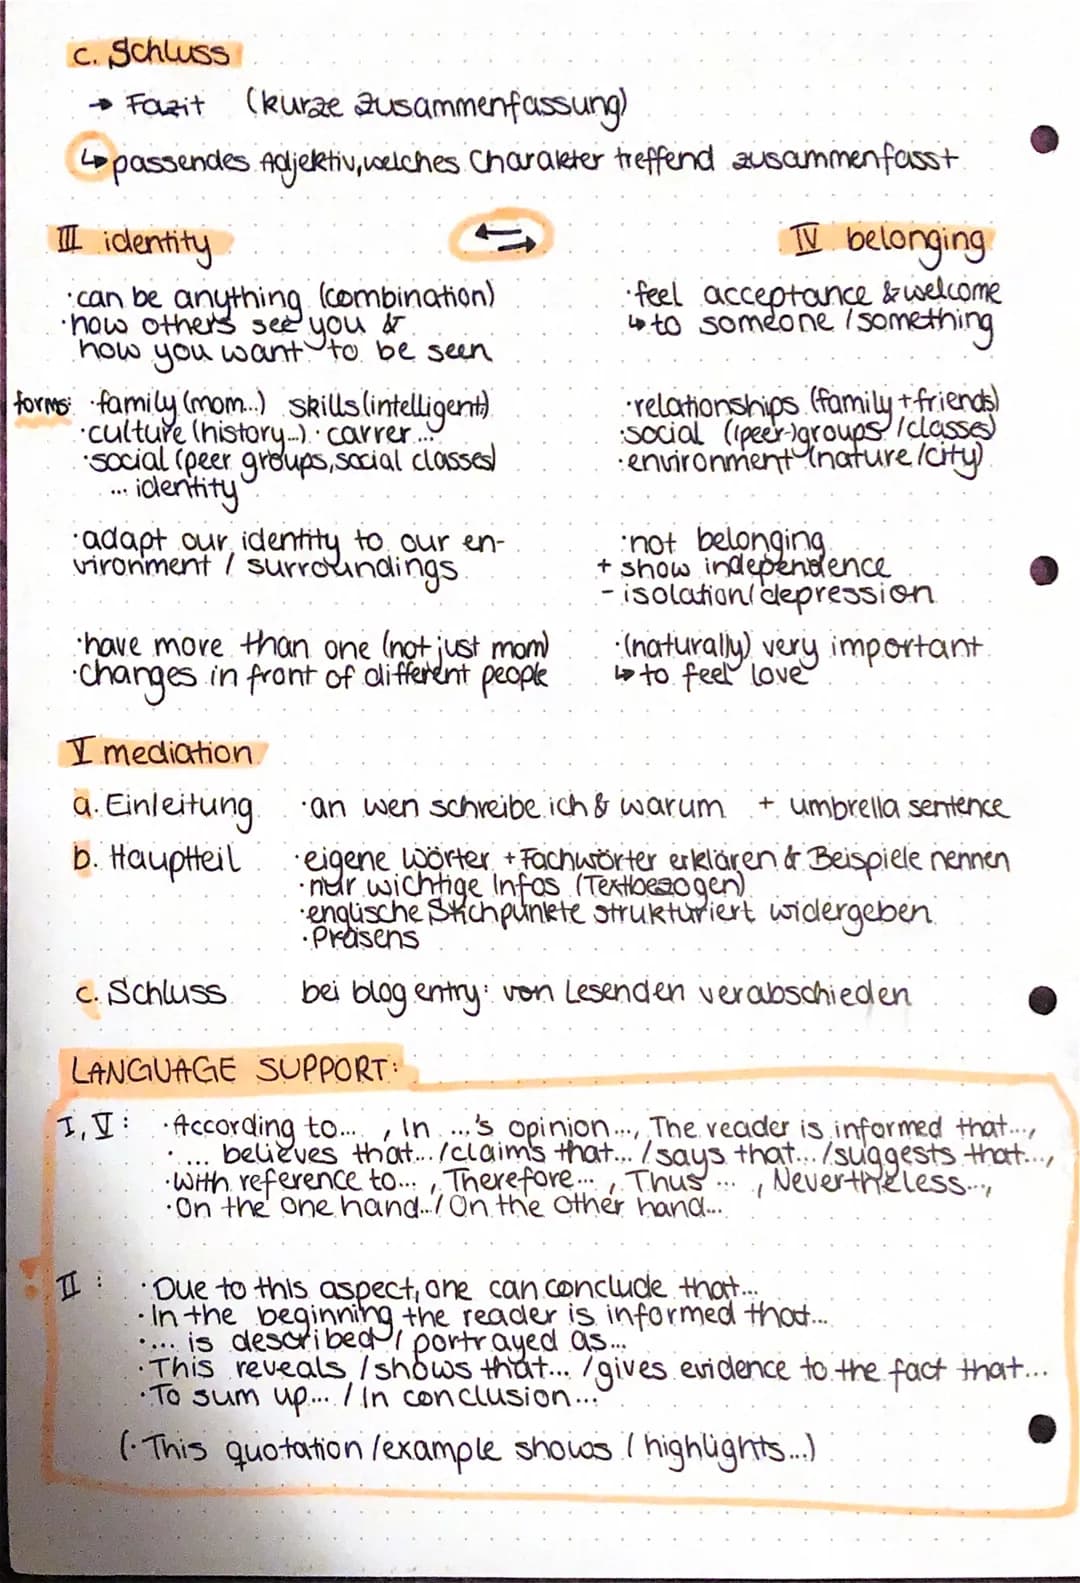 c. Schluss
→ Fazit (kurze Zusammenfassung)
↳ passendes Adjektiv, welches Charakter treffend zusammenfasst
III identity ⇆ IV belonging
·can be anything (combination)
·how others see you &
how you want to be seen
·feel acceptance & welcome
↳ to someone / something
forms: ·family (mom...) skills (intelligent)
·culture (history...) · carrer...
·social (peer groups, social classes)
... identity
·relationships (family + friends)
·social ((peer-)groups / classes)
·environment (nature / city)
·adapt our identity to our en-
vironment / surroundings
·not belonging
+ show independence
- isolation / depression
·have more than one (not just mom)
·changes in front of different people
·(naturally) very important
↳ to feel love
V mediation
a. Einleitung ·an wen schreibe ich & warum + umbrella sentence
b. Hauptteil ·eigene Wörter + Fachwörter erklären & Beispiele nennen
·nur wichtige Infos (Textbezogen)
·englische Stichpunkte strukturiert widergeben
·Präsens
c. Schluss bei blog entry: von Lesenden verabschieden
LANGUAGE SUPPORT:
I, V: ·According to... , In ...'s opinion..., The reader is informed that...,
· ... believes that... / claims that... / says that... / suggests that...,
·with reference to... , Therefore... , Thus ... , Nevertheless...,
·On the one hand... / On the other hand...
II: ·Due to this aspect, one can conclude that...
·In the beginning the reader is informed that...
·... is described / portrayed as...
·This reveals / shows that... / gives evidence to the fact that...
·To sum up... / In conclusion...
(·This quotation / example shows / highlights...)